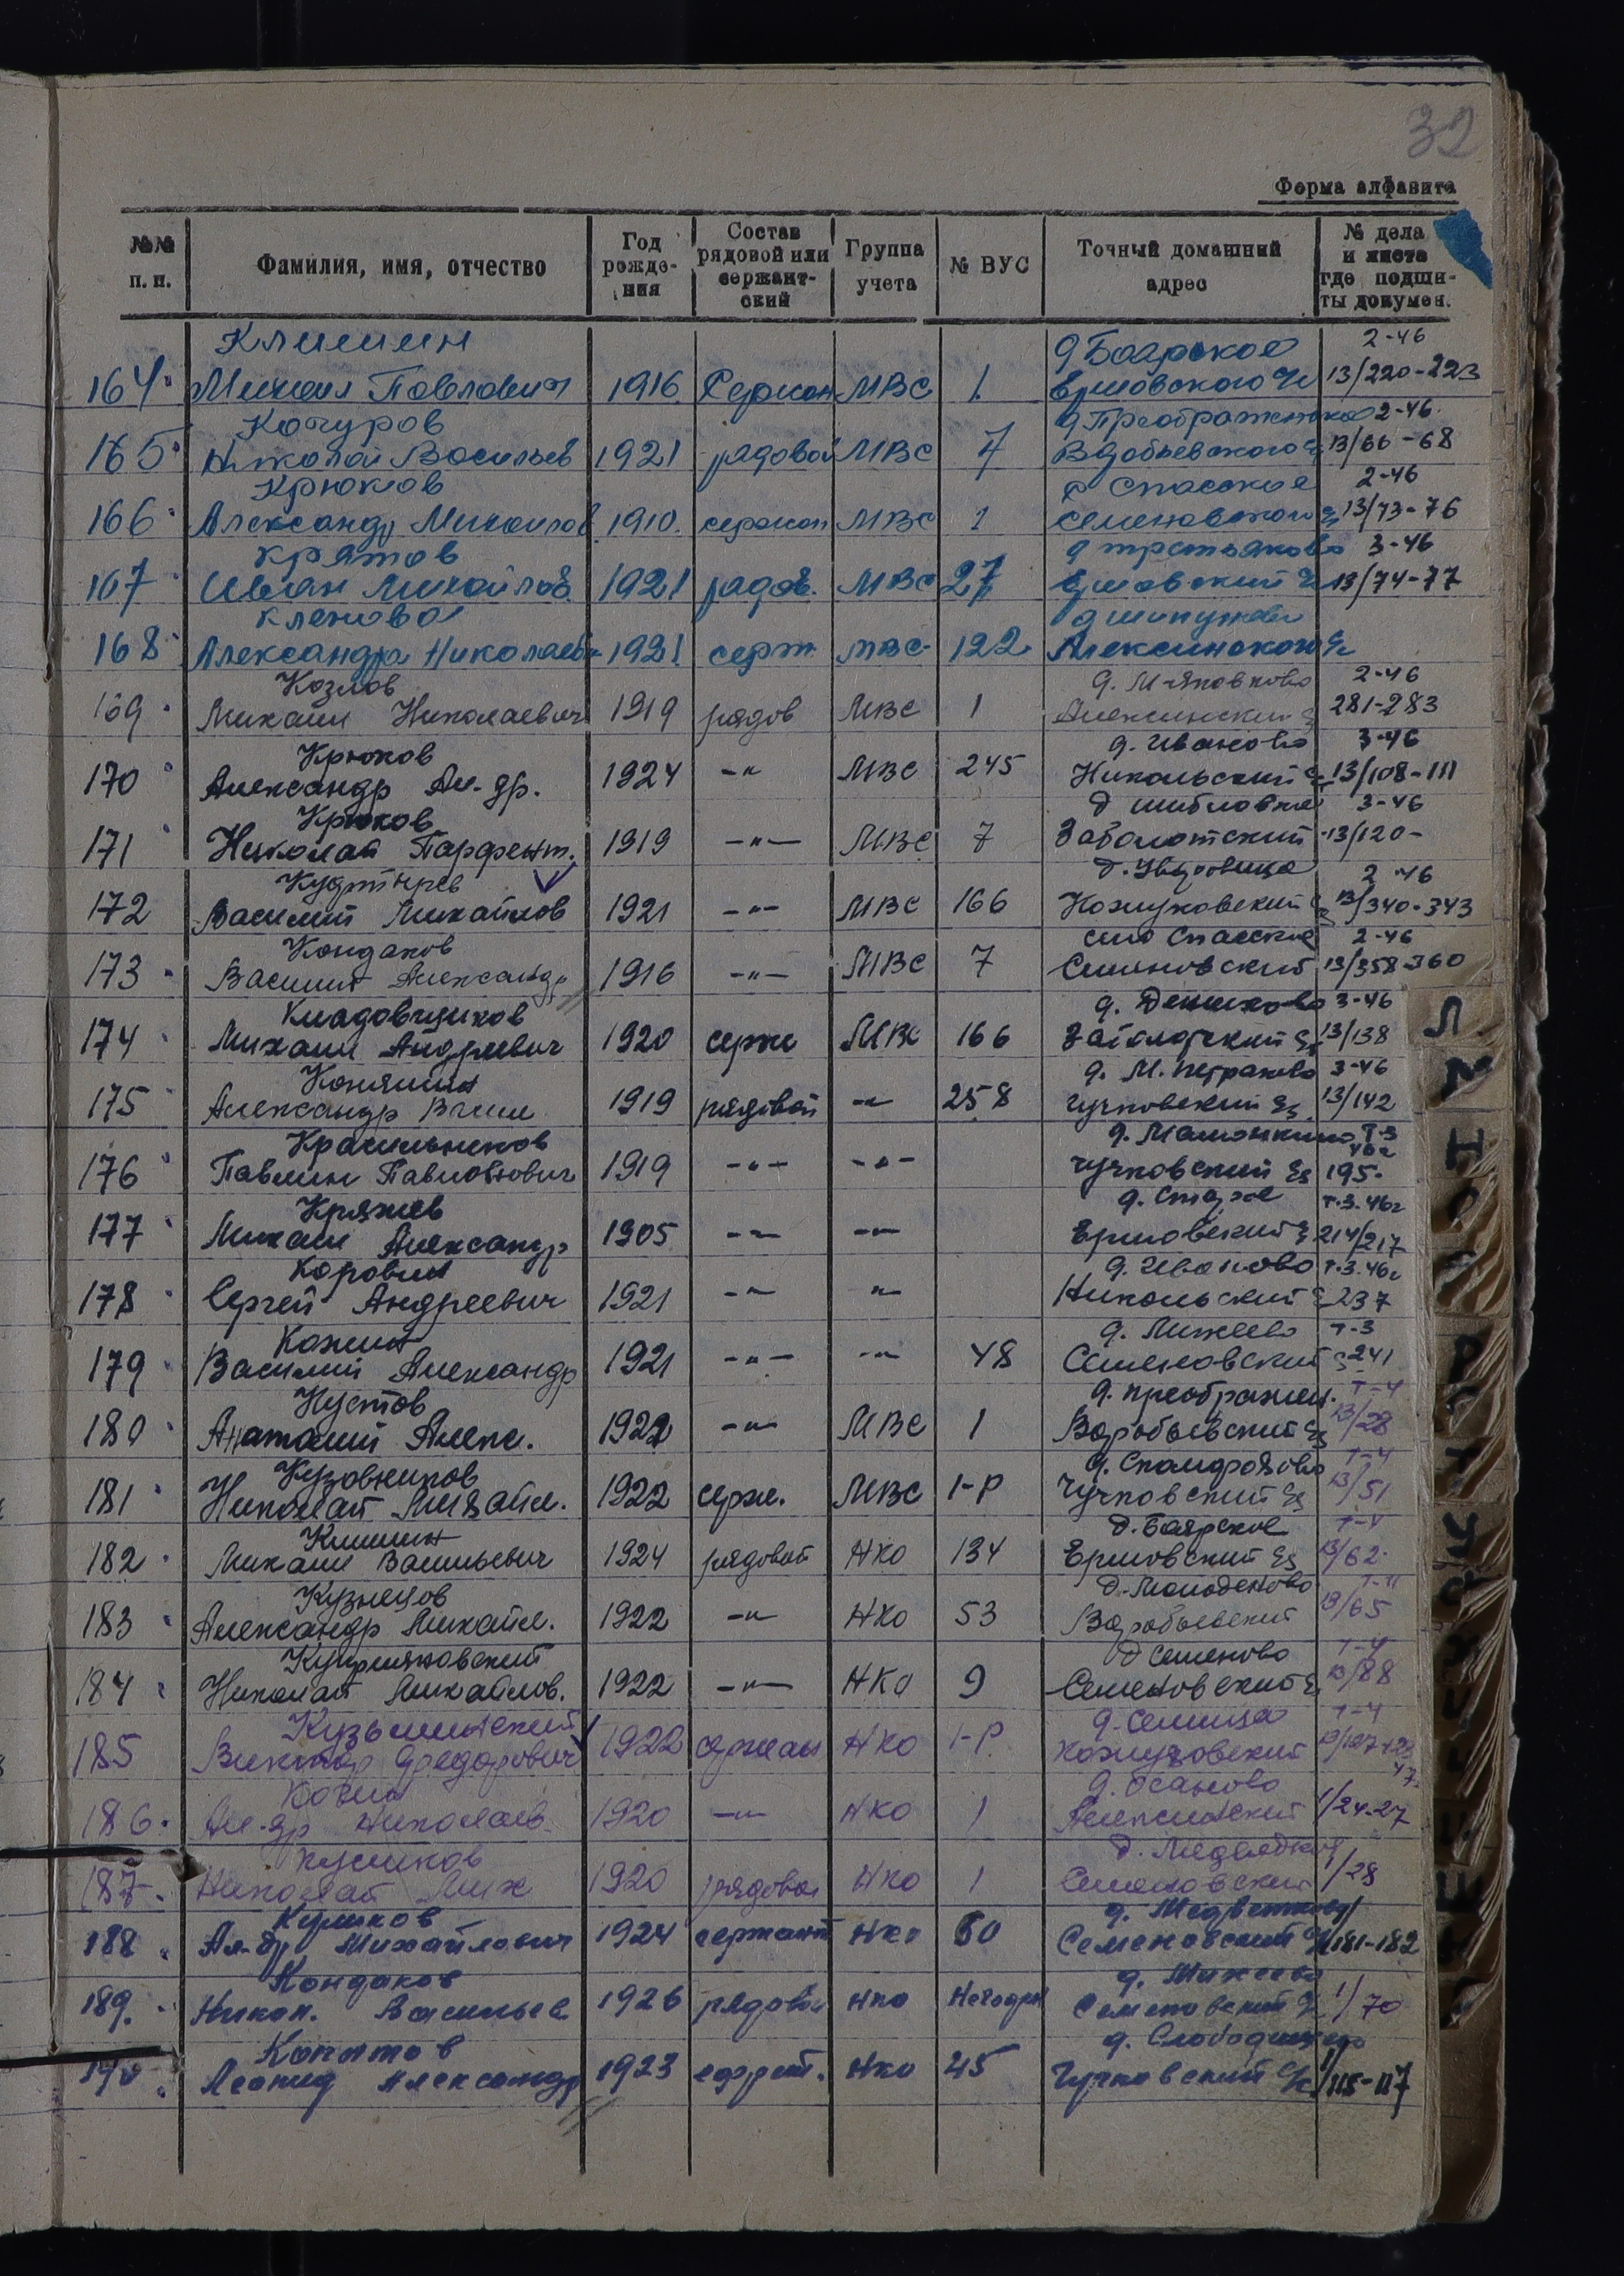 32
Форма алфавита
№№ п. п.
Фамилия, имя, отчество
Год рожде- ния
Состав рядовой или сержант- ский
Группа учета
№ ВУС
Точный домашний адрес
№ дела и листа где подши- ты докумен.
Климин д Боярское 2-46
164 Михаил Павлович 1916 Сержан МВС 1 Ершовского 13/220-223
Кочуров д Преображенское 2-46
165 Николай Васильев 1921 рядовой МВС 7 13/66-68
Крюков с Спасское 2-46
166 Александр Михайлов 1910 сержан МВС 1 Семеновского 13/73-76
Крятов д Третьяково 3-46
167 Иван Михайлов 1921 рядов. МВС 27 Ершовский 13/74-77
Кленова д
168 Александра Николаев 1921 серж МВС 122 Алексинского
Козлов д. 2-46
169 Михаил Николаевич 1919 рядов МВС 1 Алексинский 281-283
Крюков д. Иваново 3-46
170 Александр Ал-др. 1924 -"- МВС 245 Никольский 13/108-111
Крюков д Шибловка 3-46
171 Николай Парфент. 1919 -"- МВС 7 Заболотский 13/120-
д. 2-46
172 Василий Михайлов 1921 -"- МВС 166 Кожуховский 13/340-343
Кондаков село Спасское 2-46
173 Василий Александр 1916 -"- МВС 7 Семеновский 13/358-360
Кладовщиков д. Денисково 3-46
174 Михаил Андреевич 1920 серж МВС 166 Заболотский 13/138
Конягин д. М. Петраково 3-46
175 Александр Васил 1919 рядовой -"- 258 Чучковский 13/142
Красильников д. т-3 46г
176 Павлин Павлинович 1919 -"- -"- Чучковский 195-
Кряжев д. Старое т.3. 46г
177 Михаил Александр 1905 -"- -"- Ершовский 214/217
Коровин д. Иваново т.3. 46г
178 Сергей Андреевич 1921 -"- -"- Никольский 237
Кожин д. Михеево т-3
179 Василий Александр 1921 -"- -"- 48 Семеновский 241
Кустов д. Преображен. т-4
180 Анатолий Алекс. 1922 -"- МВС 1 Воробьевский 13/28
Кузовников д. т-4
181 Николай Михайл. 1922 серж. МВС 1-Р Чучковский 13/51
Климин д. Боярское т-4
182 Михаил Васильевич 1924 рядовой НКО 134 Ершовский 13/62
Кузнецов д. Молоденово
183 Александр Михайл. 1922 -"- НКО 53 Воробьевский 13/65
Куприяновский д Семеново т-4
184 Николай Михайлов. 1922 -"- НКО 9 Семеновский 13/88
Кузьминский д. т-4
185 Виктор Федорович 1922 сержан НКО 1-Р Кожуховский
Кочин д. Осаново
186. Ал-др Николаев. 1920 -"- НКО 1 Алексинский 1/24-27
Куликов д.
187. Николай Мих 1920 рядовой НКО 1 Семеновский 1/28
Куликов д.
188 Ал-др Михайлович 1924 сержант НКО 60 Семеновский 181-182
Кондаков д. Михеево
189. Никол. Васильев 1926 рядовой НКО Негодн Семеновский 1/70
Копытов д.
190 Леонид Александр 1923 ефрейт. НКО 45 Чучковский 1/115-117
Л
М
Н
О
П
Р